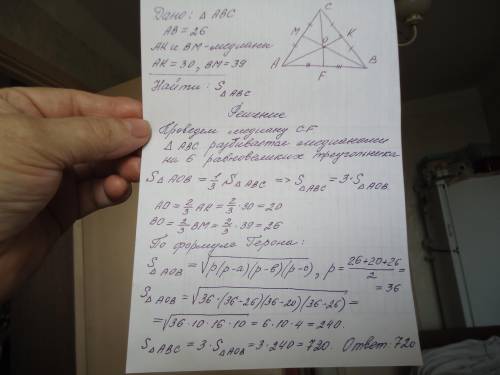 Дано: △ ABC
AB = 26
AK и BM - медианы
AK = 30, BM = 39
Найти: S△ABC
C
M
K
O
A
F
B
Решение
Проведем медиану CF.
△ ABC разбивается медианами
на 6 равновеликих треугольника
S△AOB = 1/3 · S△ABC => S△ABC = 3·S△AOB.
AO = 2/3 AK = 2/3 · 30 = 20
BO = 2/3 BM = 2/3 · 39 = 26
По формуле Герона:
S△AOB = √(p(p-a)(p-в)(p-c)), p = (26+20+26)/2 =
= 36
S△AOB = √(36·(36-26)(36-20)(36-26)) =
= √(36·10·16·10) = 6·10·4 = 240.
S△ABC = 3·S△AOB = 3·240 = 720. Ответ: 720